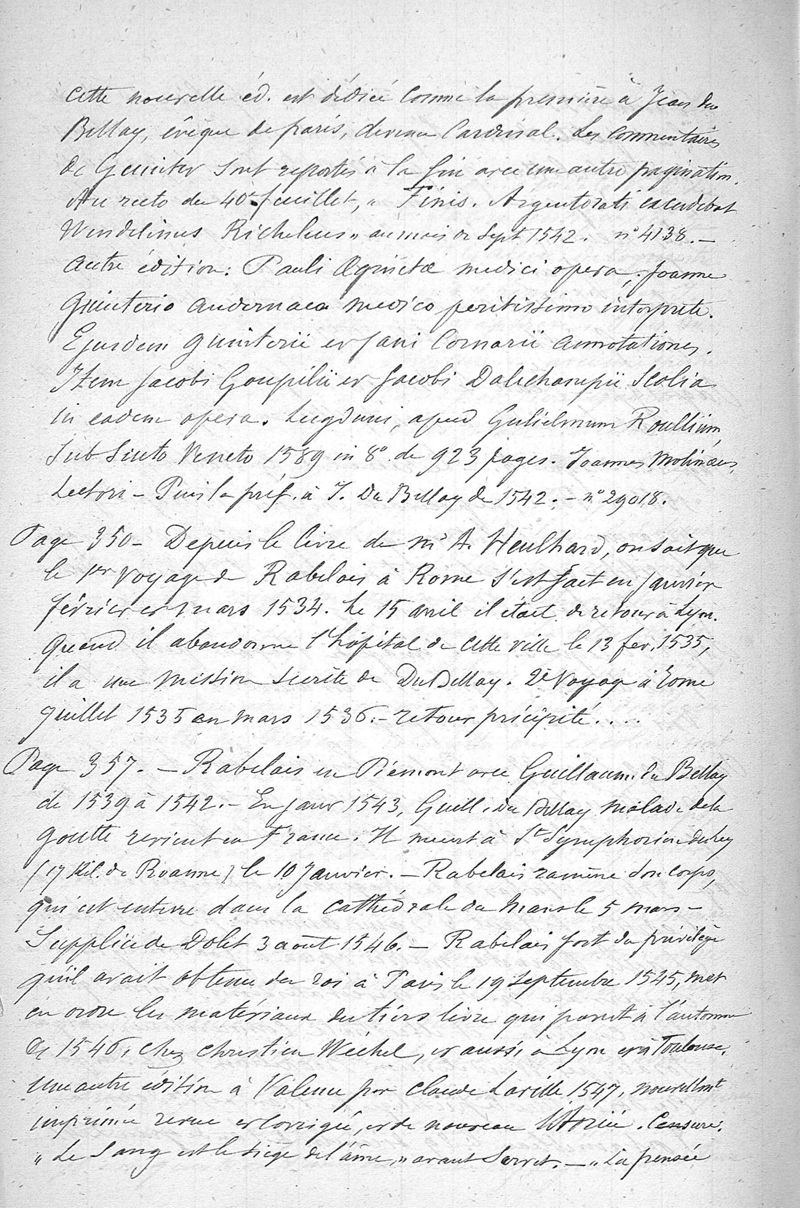 Cette nouvelle éd. est dédiée comme la première à Jean du
Bellay, évêque de paris, devenu Cardinal. Les commentaires
de Guinter sont reportés à la fin avec une autre pagination.
Au recto du 40e feuillet, „ Finis. Argentorati excudebat
Wendelinus Richelius „ au mois de Sept 1542. n° 4138. —
Autre édition : Pauli Æginetæ medici opera, Joanne
Guinterio Andernaco medico peritissimo interprete.
Ejusdem Guinterii et Jani Cornarii Annotationes.
Item Jacobi Goupilii et Jacobi Dalechampii Scolia
in eadem opera. Lugduni, apud Gulielmum Roullium
Sub Scuto Veneto 1589 in 8° de 923 pages. Joannes Molinæus
Lectori — Puis la préf. à J. Du Bellay de 1542. — n° 29018.
Page 350 — Depuis le livre de Mr A. Heulhard, on sait que
le 1er voyage de Rabelais à Rome s'est fait en janvier
février et mars 1534. Le 15 avril il était de retour à Lyon.
Quand il abandonne l'hôpital de cette ville le 13 fev. 1535,
il a une mission secrète de Du Bellay. 2e Voyage à Rome
Juillet 1535 en mars 1536. — retour précipité ....
Page 357. — Rabelais en Piémont avec Guillaume du Bellay
de 1539 à 1542. — En janv 1543, Guill. du Bellay malade de la
goutte revient en France. Il meurt à St Symphorien
(17 kil. de Roanne) le 10 Janvier. — Rabelais ramène son corps,
qui est enterré dans la cathédrale du Mans le 5 mars —
Supplice de Dolet 3 août 1546. — Rabelais fort du privilège
qu'il avait obtenu du roi à Paris le 19 septembre 1545, met
en ordre les matériaux du tiers livre qui parut à l'automne
de 1546, chez Chrestien Wéchel, et aussi à Lyon et à Toulouse.
Une autre édition à Valence par Claude La Ville 1547, nouvellmt
imprimée revue et corrigée, et de nouveau Censure.
„ Le Sang est le siège de l'âme, „ avant Servet. — „ La pensée